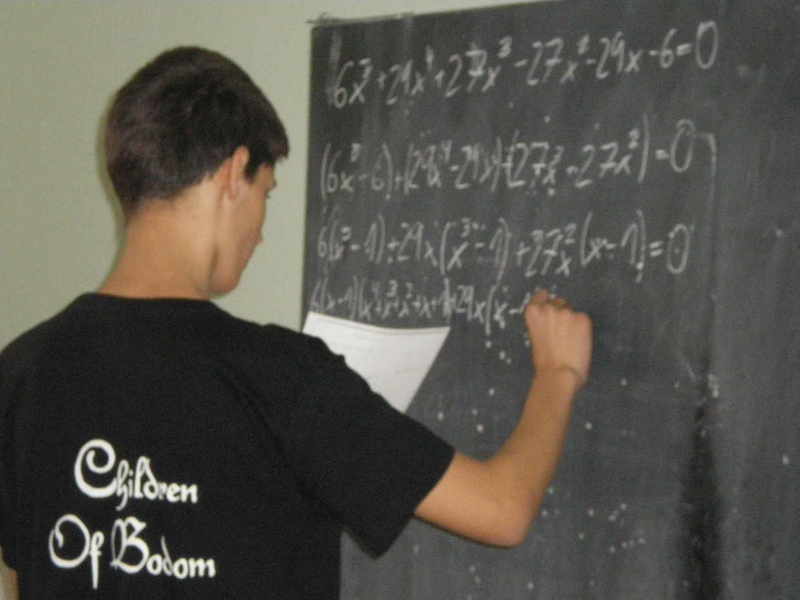 6x⁵+29x⁴+27x³-27x²-29x-6=0
(6x⁵-6)+(29x⁴-29x)+(27x³-27x²)=0
6(x⁵-1)+29x(x³-1)+27x²(x-1)=0
6(x-1)(x⁴+x³+x²+x+1)+29x(x-1
Children
Of Bodom